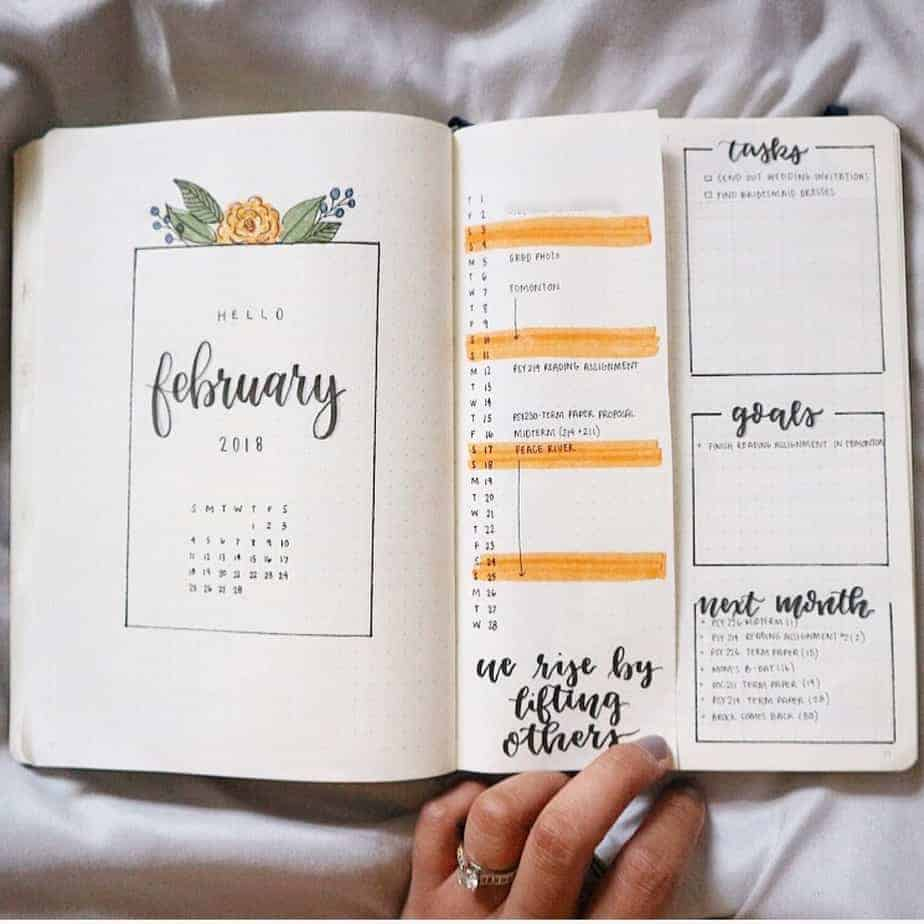 HELLO
february
2018
S M T W T F S
1 2 3
4 5 6 7 8 9 10
11 12 13 14 15 16 17
18 19 20 21 22 23 24
25 26 27 28
T 1
F 2
S 3
S 4
M 5 GRAD PHOTO
T 6
W 7 EDMONTON
T 8
F 9
S 10
S 11
M 12 PSY219 READING ASSIGNMENT
T 13
W 14
T 15 TERM PAPER PROPOSAL
F 16 MIDTERM
S 17 PEACE RIVER
S 18
M 19
T 20
W 21
T 22
F 23
S 24
S 25
M 26
T 27
W 28
we rise by
lifting
others
tasks
SEND OUT WEDDING INVITATIONS
FIND BRIDESMAID DRESSES
goals
FINISH READING ASSIGNMENT IN EDMONTON
next month
PSY 226 MIDTERM (1)
PSY 219 READING ASSIGNMENT #2(2)
PSY 226 TERM PAPER (15)
MOM'S B-DAY (16)
TERM PAPER (19)
PSY219 TERM PAPER (28)
BROCK COMES BACK (30)